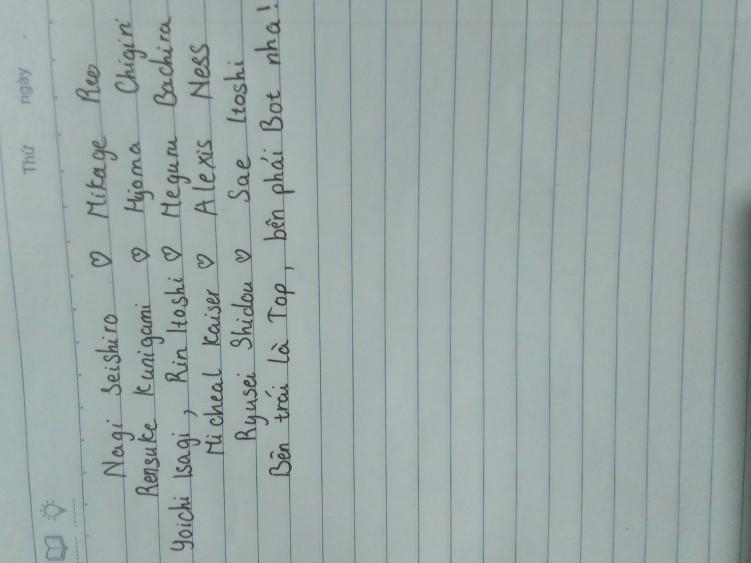 Thứ ngày
Nagi Seishiro ♡ Mikage Reo
Rensuke Kunigami ♡ Hyoma Chigiri
Yoichi Isagi, Rin Itoshi ♡ Meguru Bachira
Micheal Kaiser ♡ Alexis Ness
Ryusei Shidou ♡ Sae Itoshi
Bên trái là Top, bên phải Bot nha!